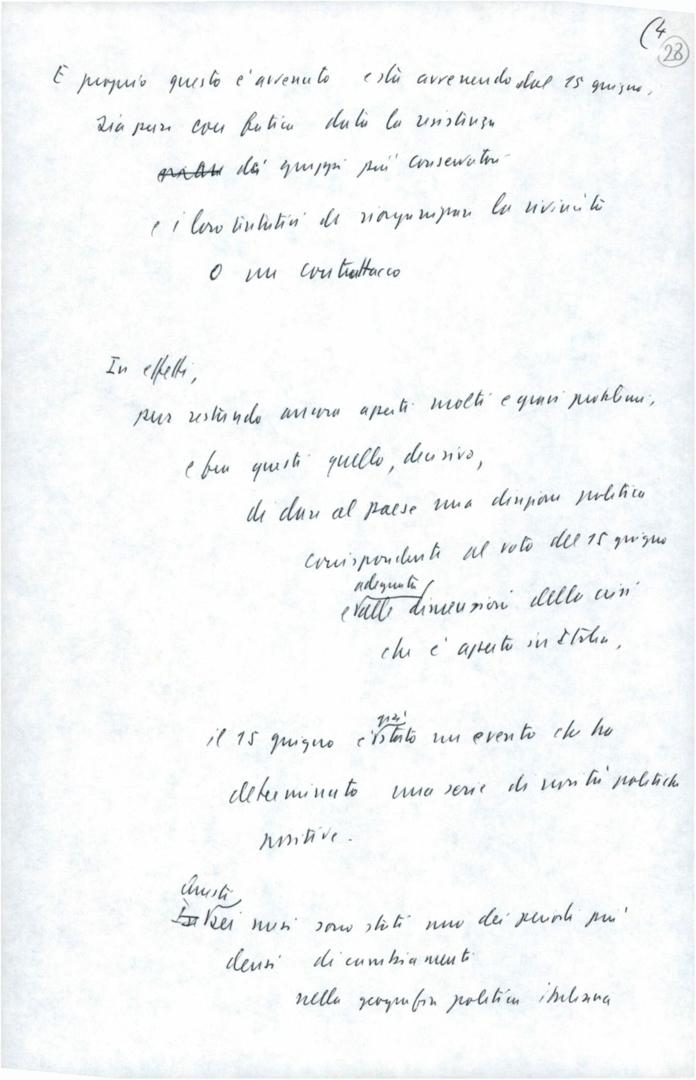 (4
28
E proprio questo è avvenuto e sta avvenendo dal 15 giugno,
sia pure con fatica data la resistenza
dei gruppi più conservatori
e i loro tentativi di riorganizzare la rivincita
o un contrattacco
In effetti,
pur restando ancora aperti molti e gravi problemi,
e fra questi quello, decisivo,
di dare al paese una direzione politica
corrispondente al voto del 15 giugno
adeguata
e alle dimensioni della crisi
che è aperta in Italia,
già
il 15 giugno è stato un evento che ha
determinato una serie di novità politiche
positive.
Questi
sei mesi sono stati uno dei periodi più
densi di cambiamenti
nella geografia politica italiana